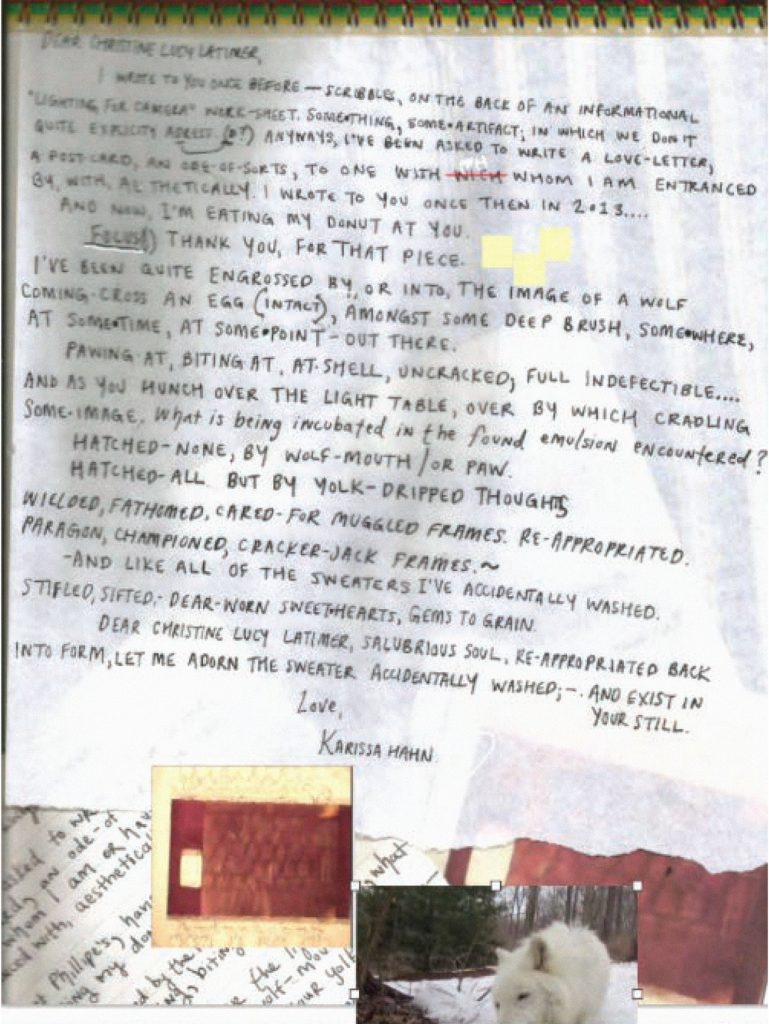 DEAR CHRISTINE LUCY LATIMER,
I WROTE TO YOU ONCE BEFORE — SCRIBBLES, ON THE BACK OF AN INFORMATIONAL
"LIGHTING FOR CAMERA" WORK-SHEET. SOME•THING, SOME•ARTIFACT; IN WHICH WE DON'T
QUITE EXPLICITY ADRESS. (D?) ANYWAYS, I'VE BEEN ASKED TO WRITE A LOVE-LETTER,
A POST-CARD, AN ODE-OF-SORTS, TO ONE WITH WHOM I AM ENTRANCED
BY, WITH, AL THETICALLY. I WROTE TO YOU ONCE THEN IN 2013....
AND NOW, I'M EATING MY DONUT AT YOU.
FOCUS() THANK YOU, FOR THAT PIECE.
I'VE BEEN QUITE ENGROSSED BY, OR INTO, THE IMAGE OF A WOLF
COMING-CROSS AN EGG (INTACT), AMONGST SOME DEEP BRUSH, SOME•WHERE,
AT SOME•TIME, AT SOME•POINT - OUT THERE.
PAWING-AT, BITING AT, AT-SHELL, UNCRACKED, FULL INDEFECTIBLE....
AND AS YOU HUNCH OVER THE LIGHT TABLE, OVER BY WHICH CRADLING
SOME•IMAGE. What is being incubated in the found emulsion encountered?
HATCHED-NONE, BY WOLF-MOUTH/OR PAW.
HATCHED-ALL BUT BY YOLK-DRIPPED THOUGHTS
WIELDED, FATHOMED, CARED-FOR MUGGLED FRAMES. RE-APPROPRIATED.
PARAGON, CHAMPIONED, CRACKER-JACK FRAMES.~
-AND LIKE ALL OF THE SWEATERS I'VE ACCIDENTALLY WASHED.
STIFLED, SIFTED,- DEAR-WORN SWEETHEARTS, GEMS TO GRAIN.
DEAR CHRISTINE LUCY LATIMER, SALUBRIOUS SOUL, RE-APPROPRIATED BACK
INTO FORM, LET ME ADORN THE SWEATER ACCIDENTALLY WASHED;-. AND EXIST IN
YOUR STILL.
Love,
KARISSA HAHN
asked to
an ode-of
whom I am or
with, aesthetical
Philipe's,
my
by the
what